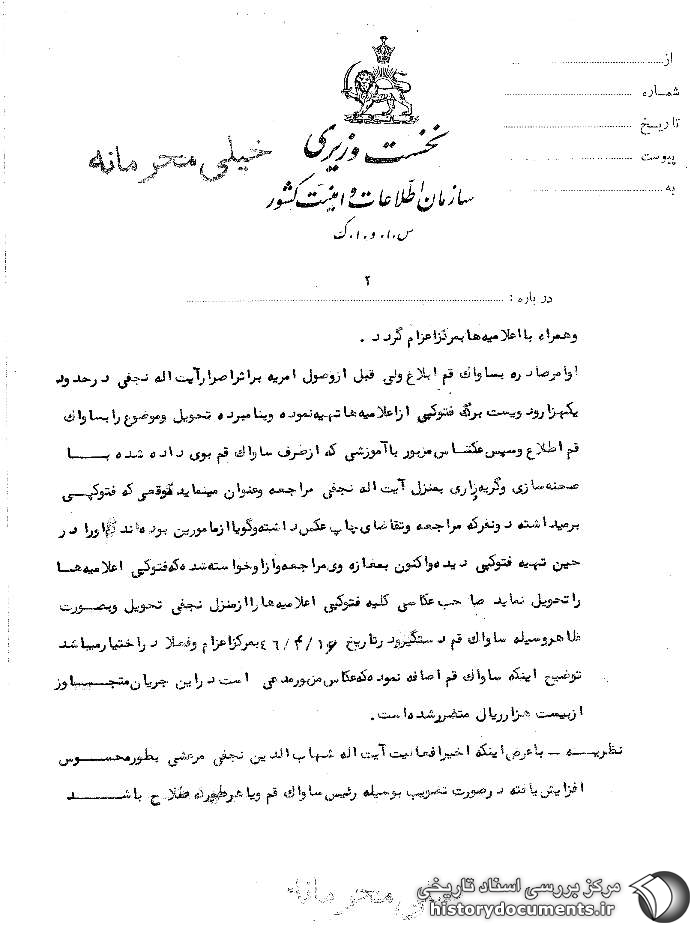 از
شماره
تاریخ
پیوست
به
نخست وزیری
خیلی محرمانه
سازمان اطلاعات و امنیت کشور
س.ا.و.ا.ک
۲
درباره :
وهمراه بااعلامیه‌ها بمرکزاعزام گردد .
اوامرصادره بساواك قم ابلاغ ولی قبل ازوصول امریه براثراصرارآیت اله نجفی درحدود
یکهزارودویست برگ فتوکپی ازاعلامیه‌ها تهیه‌نموده وبنامبرده تحویل وموضوع رابساواك
قم اطلاع وسپس عکاس مزبور باآموزشی که ازطرف ساواك قم بوی داده شده بـــا
صحنه‌سازی وگریه‌زاری بمنزل آیت اله نجفی مراجعه وعنوان مینماید موقعی که فتوکپـــی
برمیداشته دونفرکه مراجعه وتقاضای چاپ عکس داشته‌وگویاازمامورین بوده‌اند اورادر
حین تهیه فتوکپی دیده‌واکنون بمغازه وی‌مراجعه‌وازاوخواسته‌شده‌که‌فتوکپی اعلامیه‌هــا
راتحویل نماید صاحب عکاسی کلیه فتوکپی اعلامیه‌هاراازمنزل نجفی تحویل وبصورت
ظاهروسیله ساواك قم دستگیرودرتاریخ ۴۶/۴/۱۶ بمرکزاعزام وفعلا دراختیارمیباشد
توضیح اینکه ساواك قم اضافه نموده‌که‌عکاس مزبورمدعی است دراین جریان‌متجـــاوز
ازبیست هزارریال متضررشده‌است .
نظریـــه ـ باعرض اینکه اخیرافعالیت آیت اله شهاب الدین نجفی مرعشی بطورمحســـوس
افزایش یافته درصورت تصویب بوسیله رئیس ساواك قم ویاهرطورکه صلاح باشـــد
خیلی محرمانه
مرکز بررسی اسناد تاریخی
historydocuments.ir